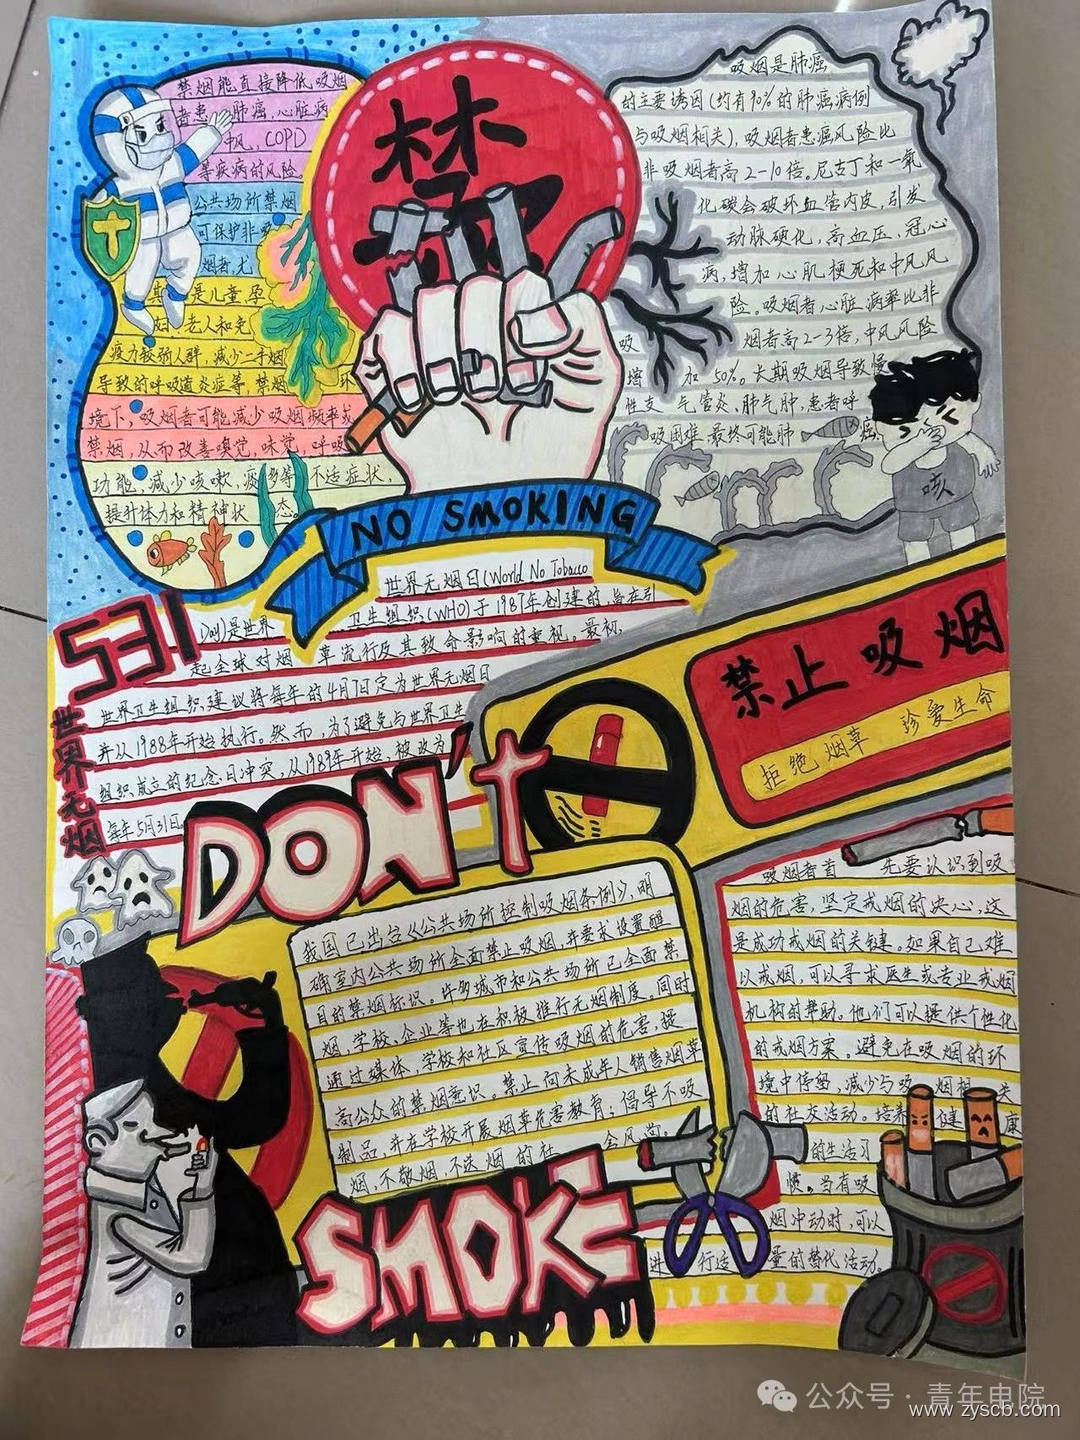 禁烟能直接降低吸烟
者患 肺癌,心脏病
中风,COPD
等疾病的风险。
公共场所禁烟
可保护非吸
烟者,尤
其 是儿童,孕
妇 老人和免
疫力较弱人群,减少二手烟
导致的呼吸道炎症等,禁烟 环
境下,吸烟者可能减少吸烟频率或
禁烟,从而改善嗅觉,味觉,呼吸
功能,减少咳嗽,痰多等 不适症状,
提升体力和精神状 态。
禁
烟
NO SMOKING
吸烟是肺癌
的主要诱因(约有90%的肺癌病例
与吸烟相关),吸烟者患癌风险比
非吸烟者高2-10倍。尼古丁和一氧
化碳会破坏血管内皮,引发
动脉硬化,高血压,冠心
病,增加心肌梗死和中风风
险。吸烟者心脏病率比非
吸 烟者高2-3倍,中风风险
增 加50%。长期吸烟导致慢
性支 气管炎、肺气肿,患者呼
吸困难,最终可能肺 癌.
咳
531
世界无烟
世界无烟日(World No Tobacco
Day)是世界 卫生组织(WHO)于1987年创建的,旨在引
起全球对烟 草流行及其致命影响的重视。最初,
世界卫生组织建议将每年的4月7日定为世界无烟日
并从1988年开始执行。然而,为了避免与世界卫生
组织成立的纪念日冲突,从1989年开始,被改为
每年5月31日。
禁止吸烟
拒绝烟草 珍爱生命
DON't
我国已出台《公共场所控制吸烟条例》,明
确室内公共场所全面禁止吸烟,并要求设置醒
目的禁烟标识。许多城市和公共场所已全面禁
烟,学校,企业等也在积极推行无烟制度。同时
通过媒体,学校和社区宣传吸烟的危害,提
高公众的禁烟意识。禁止向未成年人销售烟草
制品,并在学校开展烟草危害教育;倡导不吸
烟,不敬烟,不送烟的社 会风尚。
SMOKE
吸烟者首 先要认识到吸
烟的危害,坚定戒烟的决心,这
是成功戒烟的关键。如果自己难
以戒烟,可以寻求医生或专业戒烟
机构的帮助,他们可以提供个性化
的戒烟方案。避免在吸烟的环
境中停留,减少与吸 烟相 关
的社交活动。培养 健 康
的生活习
惯。当有吸
烟冲动时,可以
进 行适 量的替代活动。
公众号·青年电院
www.zyscb.com